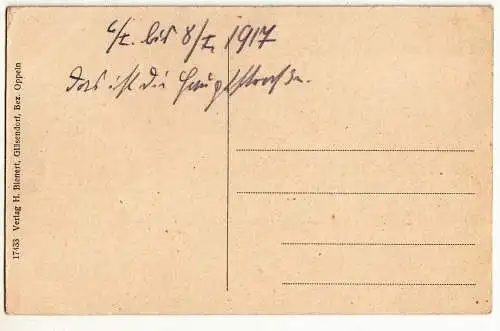 6/I. bis 8/I. 1917
Das ist die Hauptstraße.
17433 Verlag H. Bienert, Gillsendorf, Bez. Oppeln